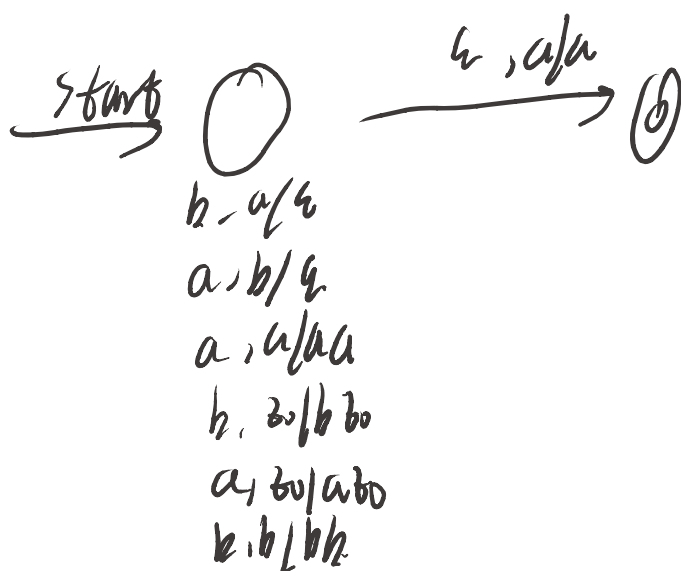 start
ε, a/a
b, a/ε
a, b/ε
a, a/aa
b, z0/bz0
a, z0/az0
b, b/bb